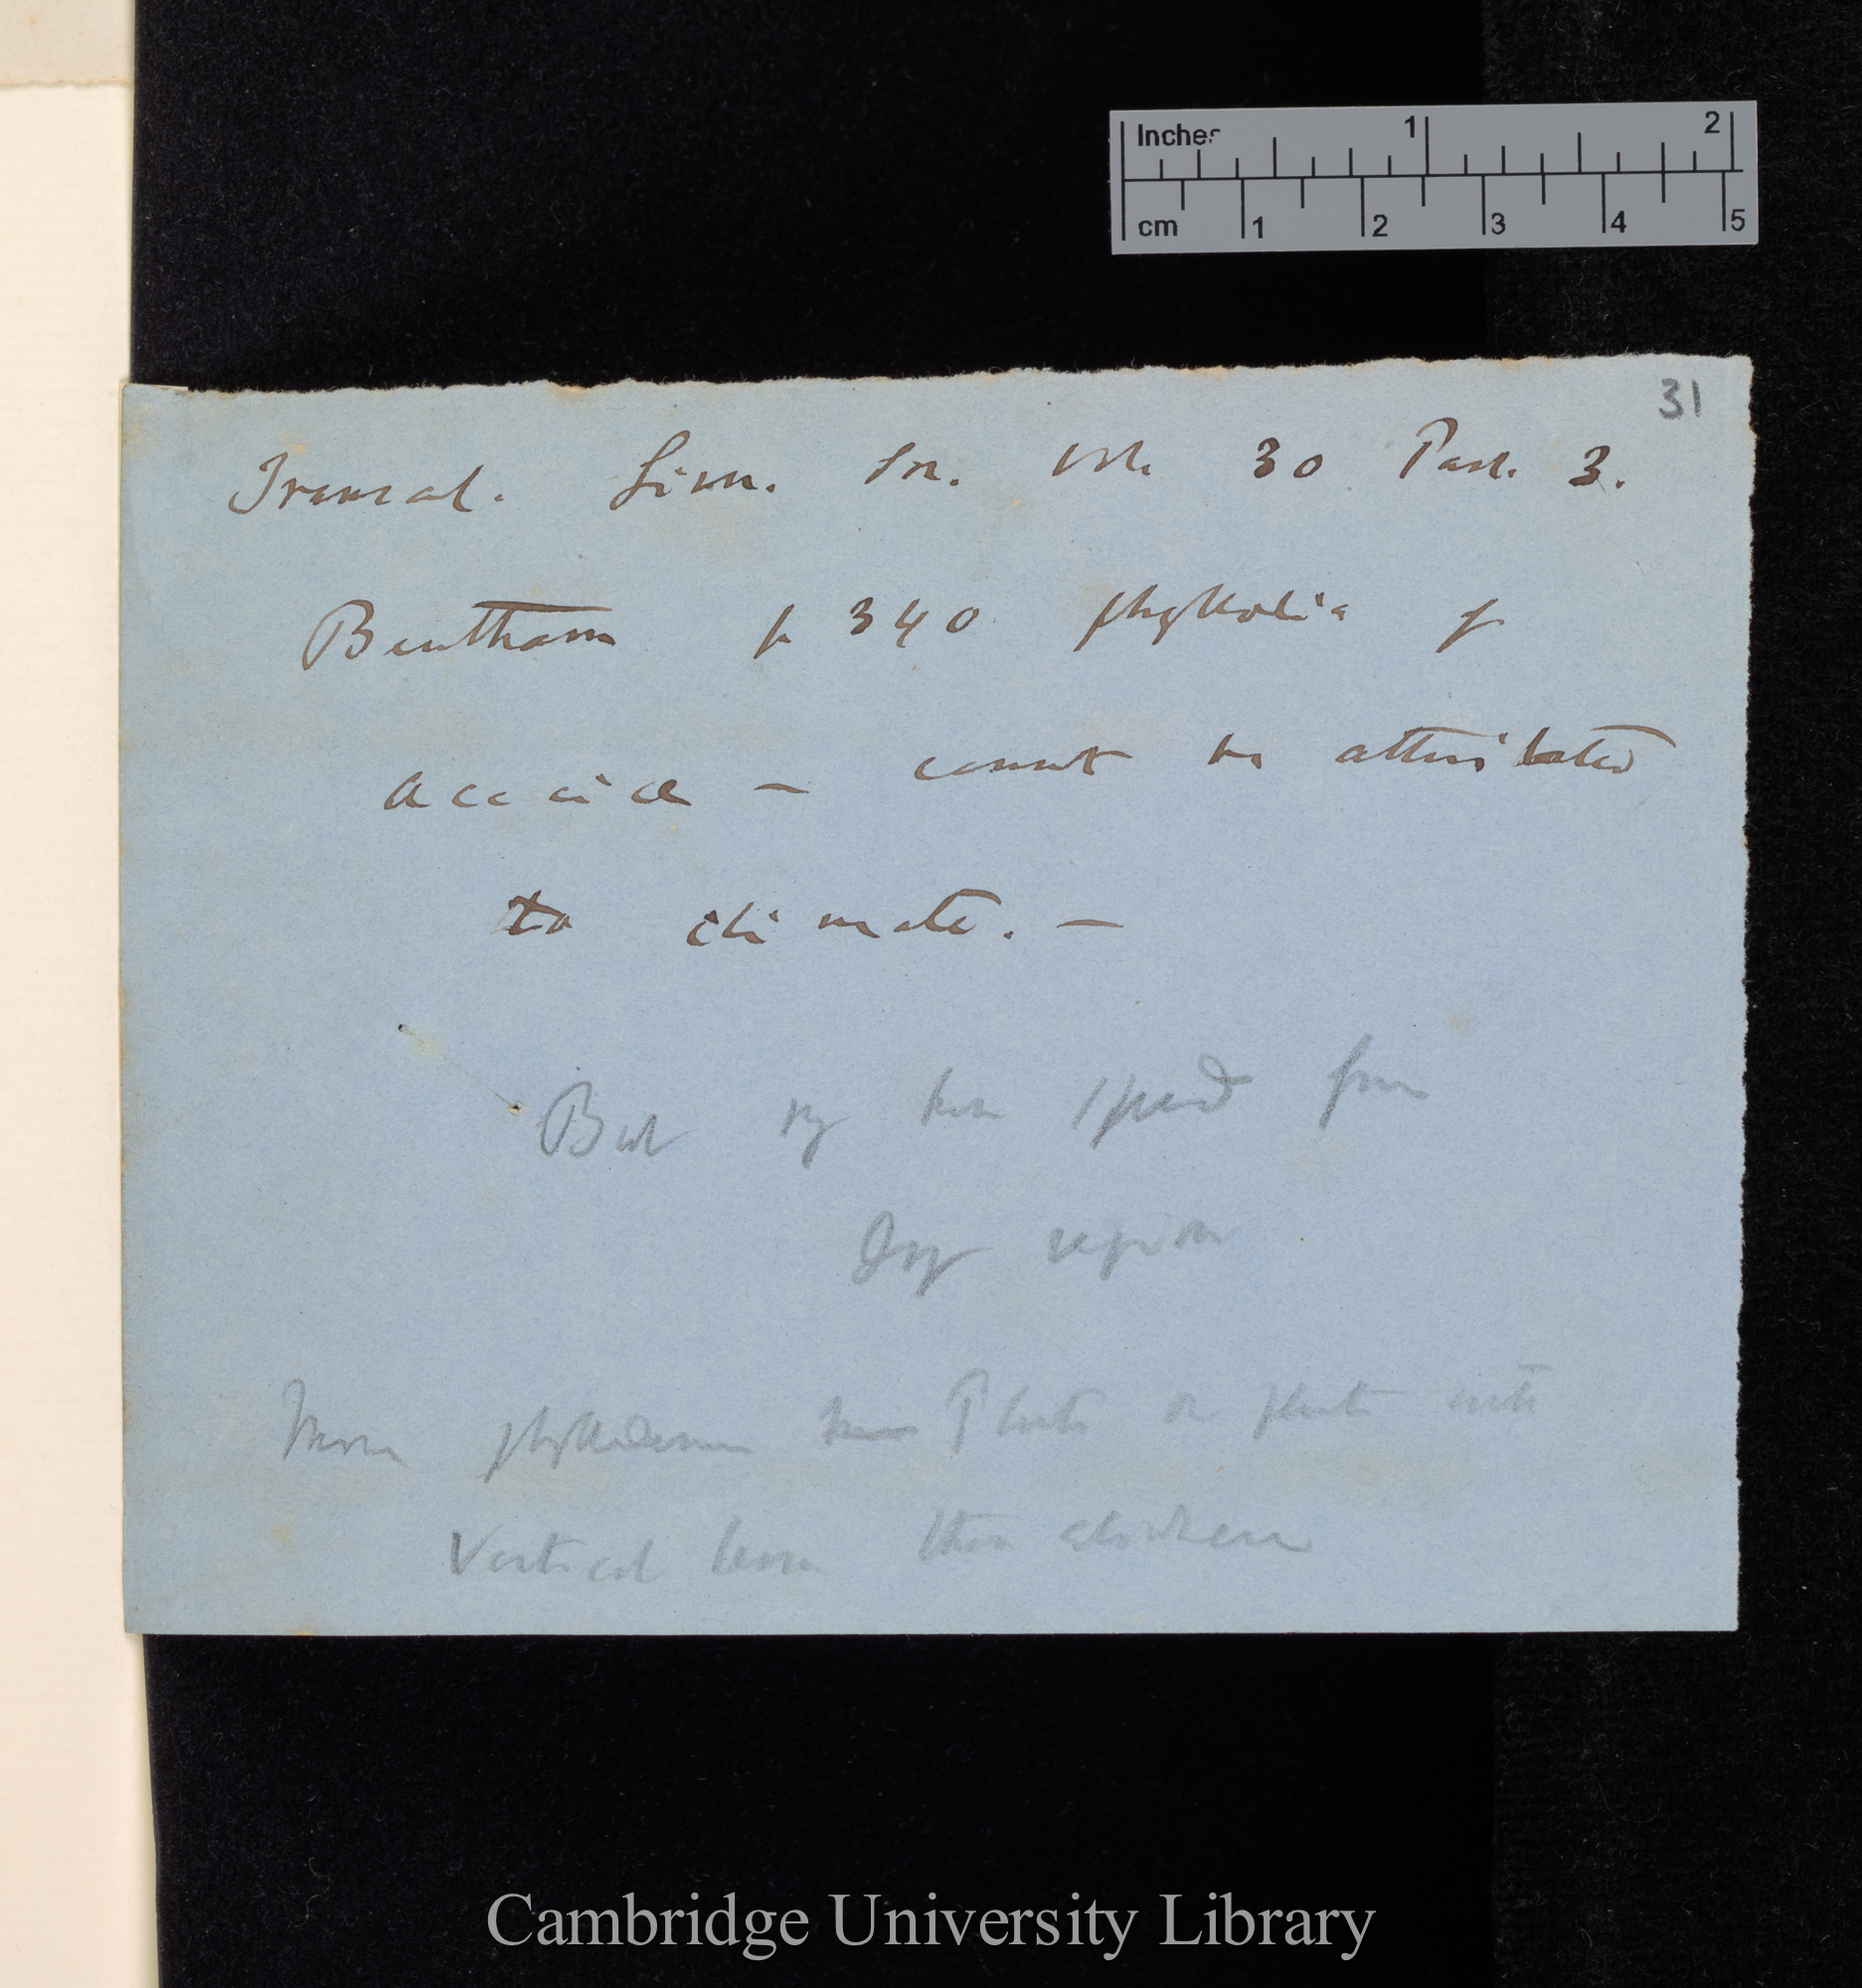 Inches 1 2
cm 1 2 3 4 5
31
Transact. Linn. Soc. Vol. 30 Part. 3.
Bentham p 340 phyllodia of
acacia – cannot be attributed
to climate. –
But may have spread from
Dry region
More phyllodineous Plants or plants with
Vertical leaves than elsewhere
Cambridge University Library